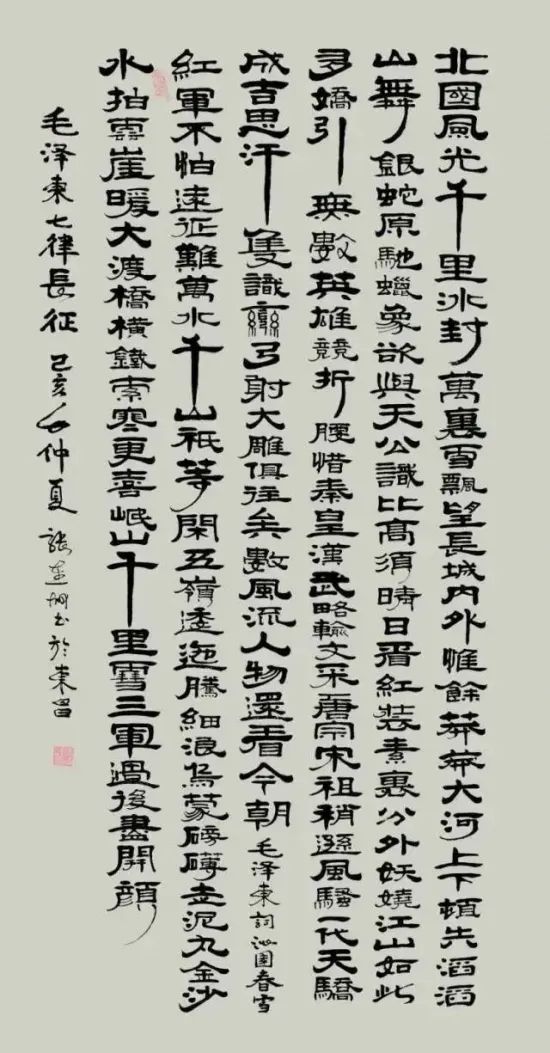 北國風光千里冰封萬裏雪飄望長城內外惟餘莽莽大河上下頓失滔滔
山舞銀蛇原馳蠟象欲與天公識比高須晴日看紅裝素裹分外妖嬈江山如此
多嬌引無數英雄競折腰惜秦皇漢武略輸文采唐宗宋祖稍遜風騷一代天驕
成吉思汗隻識彎弓射大雕俱往矣數風流人物還看今朝 毛泽東詞沁園春雪
紅軍不怕遠征難萬水千山祇等閑五嶺逶迤騰細浪烏蒙磅礴走泥丸金沙
水拍雲崖暖大渡橋橫鐵索寒更喜岷山千里雪三軍過後盡開顏
毛泽東七律長征 己亥年仲夏 張书於東昌